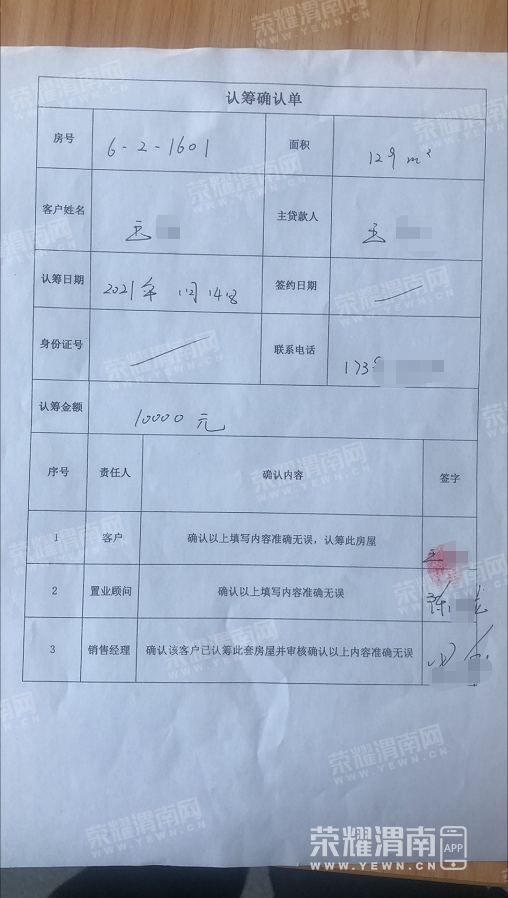 认筹确认单
房号 6-2-1601 面积 129 m²
客户姓名 王 主贷款人 王
认筹日期 2021年 12月14日 签约日期
身份证号 联系电话 173
认筹金额 10000 元
序号 责任人 确认内容 签字
1 客户 确认以上填写内容准确无误，认筹此房屋
2 置业顾问 确认以上填写内容准确无误
3 销售经理 确认该客户已认筹此套房屋并审核确认以上内容准确无误
荣耀渭南网 APP
WWW.YEWN.CN